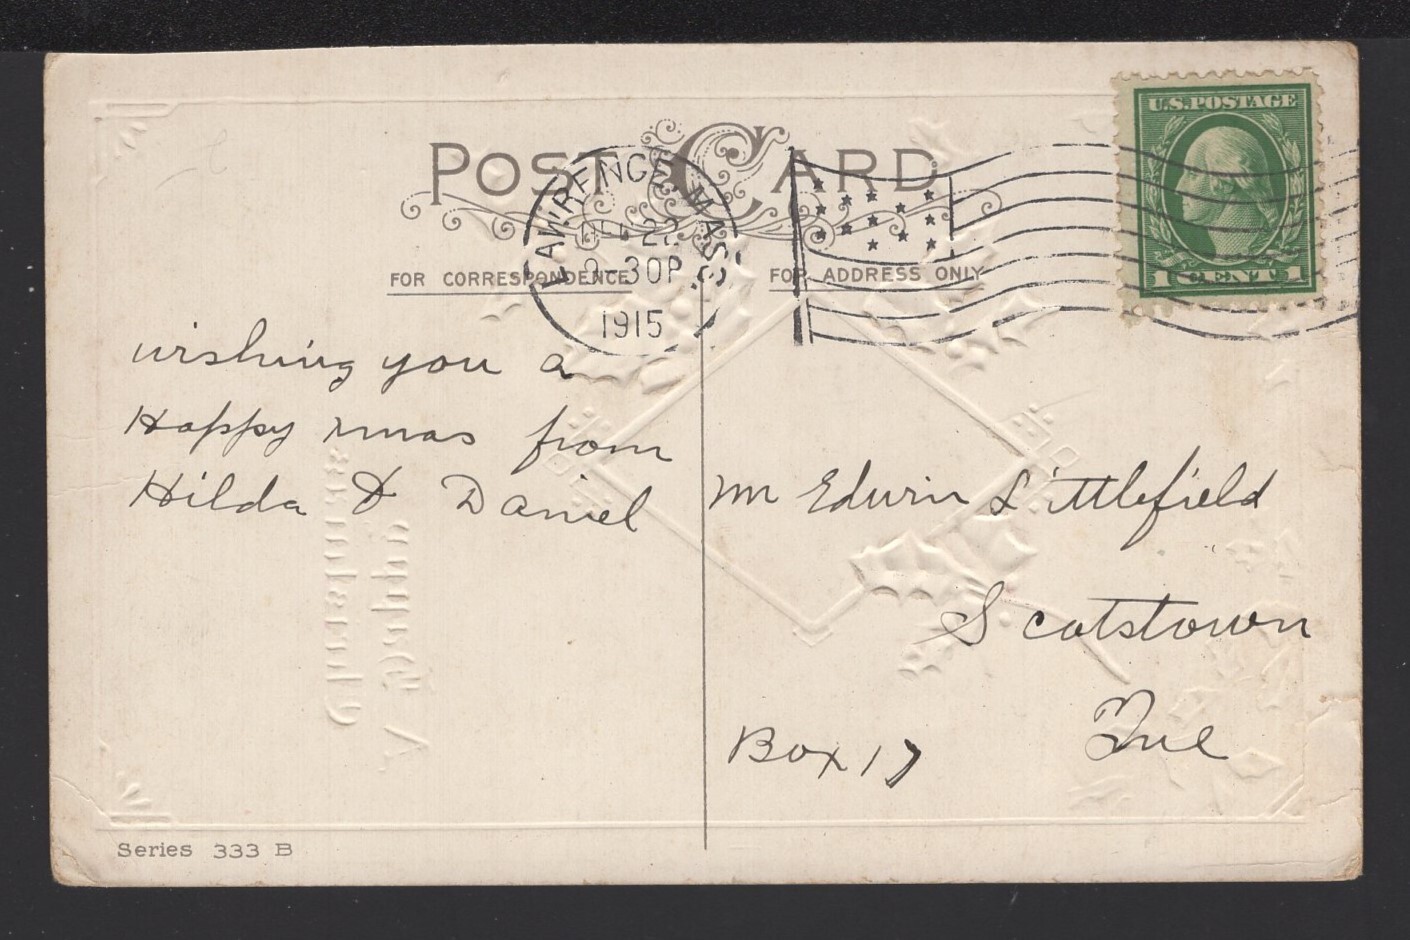 POST CARD
U.S. POSTAGE
LAWRENCE MASS.
DEC 22
-30P
1915
1 CENT 1
FOR CORRESPONDENCE
FOR ADDRESS ONLY
wishing you a
Happy xmas from
Hilda & Daniel
Mr Edwin Littlefield
Scotstown
Que
Box 17
A Happy
Christmas
Series 333 B